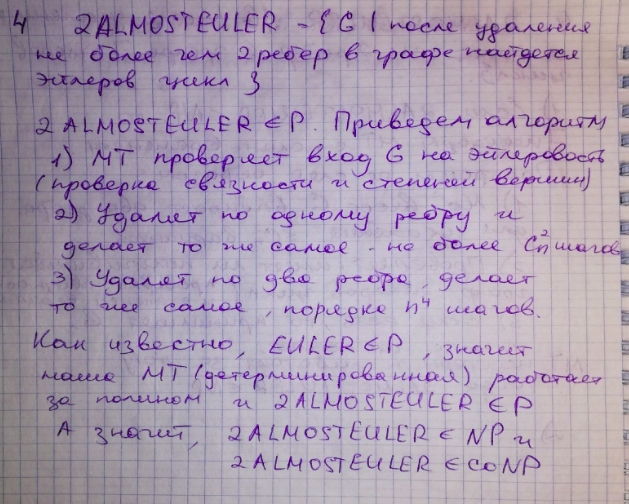 4 2ALMOSTEULER = { G | после удаления
не более чем 2 ребер в графе найдется
эйлеров цикл }
2ALMOSTEULER ∈ P. Приведем алгоритм
1) МТ проверяет вход G на эйлеровость
(проверка связности и степеней вершин)
2) Удаляет по одному ребру и
делает то же самое - не более C²ₙ шагов
3) Удаляет по два ребра, делает
то же самое, порядка n⁴ шагов.
Как известно, EULER ∈ P, значит
наша МТ (детерминированная) работает
за полином и 2ALMOSTEULER ∈ P
А значит, 2ALMOSTEULER ∈ NP и
2ALMOSTEULER ∈ coNP